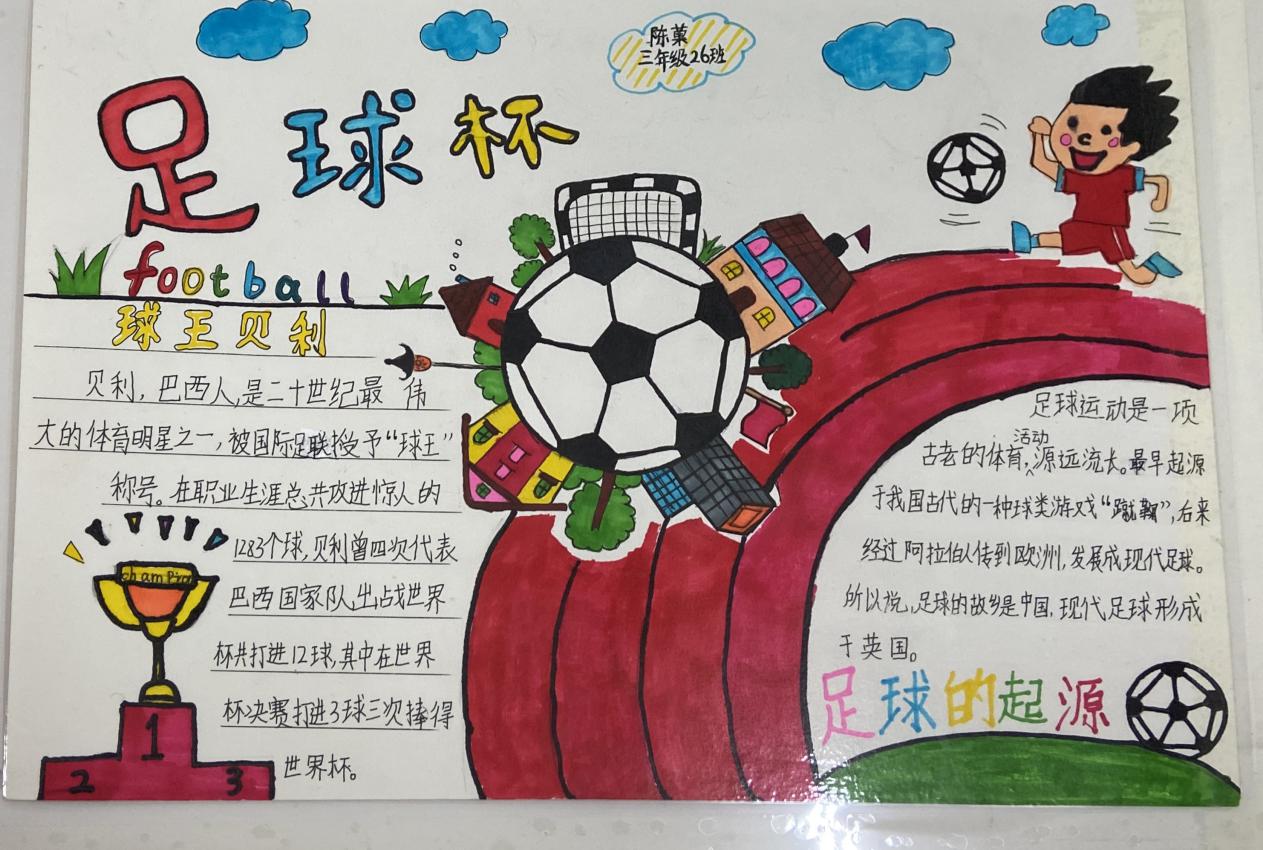 陈菓
三年级26班
足球杯
football
球王贝利
贝利，巴西人，是二十世纪最伟
大的体育明星之一，被国际足联授予“球王”
称号。在职业生涯总共攻进惊人的
1283个球，贝利曾四次代表
巴西国家队出战世界
杯共打进12球，其中在世界
杯决赛打进3球三次捧得
世界杯。
champion
1
2
3
足球运动是一项
古老的体育活动，源远流长。最早起源
于我国古代的一种球类游戏“蹴鞠”，后来
经过阿拉伯人传到欧洲，发展成现代足球。
所以说，足球的故乡是中国，现代足球形成
于英国。
足球的起源